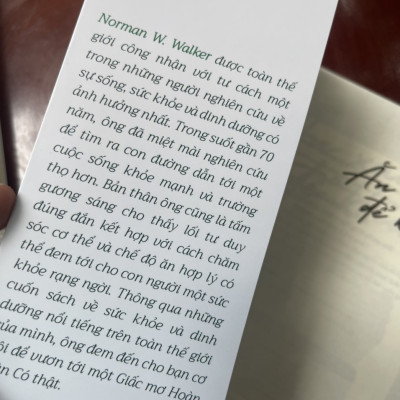 Norman W. Walker được toàn thế
giới công nhận với tư cách một
trong những người nghiên cứu về
sự sống, sức khỏe và dinh dưỡng có
ảnh hưởng nhất. Trong suốt gần 70
năm, ông đã miệt mài nghiên cứu
để tìm ra con đường dẫn tới một
cuộc sống khỏe mạnh và trường
thọ hơn. Bản thân ông cũng là tấm
gương sáng cho thấy lối tư duy
đúng đắn kết hợp với cách chăm
sóc cơ thể và chế độ ăn hợp lý có
thể đem tới cho con người một sức
khỏe rạng ngời. Thông qua những
cuốn sách về sức khỏe và dinh
dưỡng nổi tiếng trên toàn thế giới
của mình, ông đem đến cho bạn cơ
để vươn tới một Giấc mơ Hoàn
Có thật.
Ăn
để